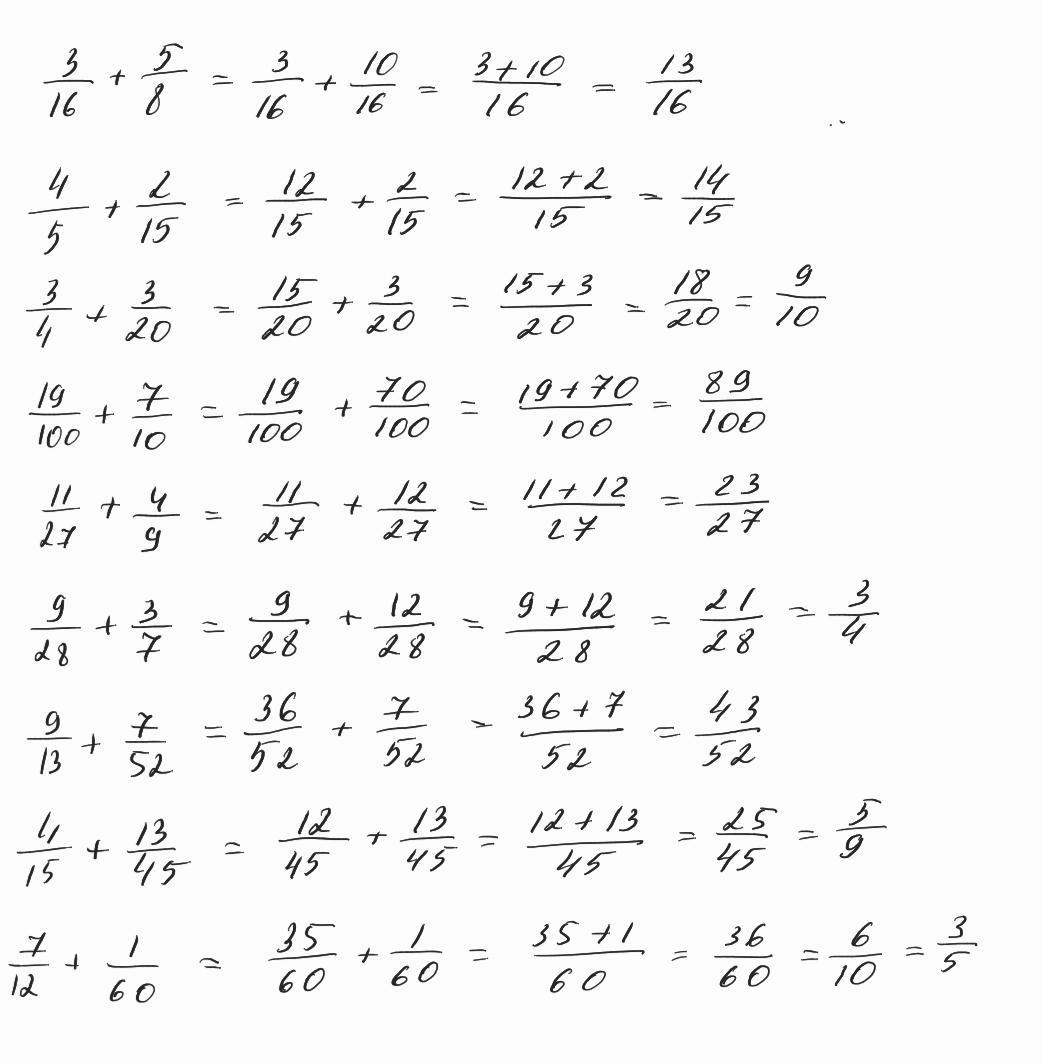 3/16 + 5/8 = 3/16 + 10/16 = (3+10)/16 = 13/16
4/5 + 2/15 = 12/15 + 2/15 = (12+2)/15 = 14/15
3/4 + 3/20 = 15/20 + 3/20 = (15+3)/20 = 18/20 = 9/10
19/100 + 7/10 = 19/100 + 70/100 = (19+70)/100 = 89/100
11/27 + 4/9 = 11/27 + 12/27 = (11+12)/27 = 23/27
9/28 + 3/7 = 9/28 + 12/28 = (9+12)/28 = 21/28 = 3/4
9/13 + 7/52 = 36/52 + 7/52 = (36+7)/52 = 43/52
4/15 + 13/45 = 12/45 + 13/45 = (12+13)/45 = 25/45 = 5/9
7/12 + 1/60 = 35/60 + 1/60 = (35+1)/60 = 36/60 = 6/10 = 3/5